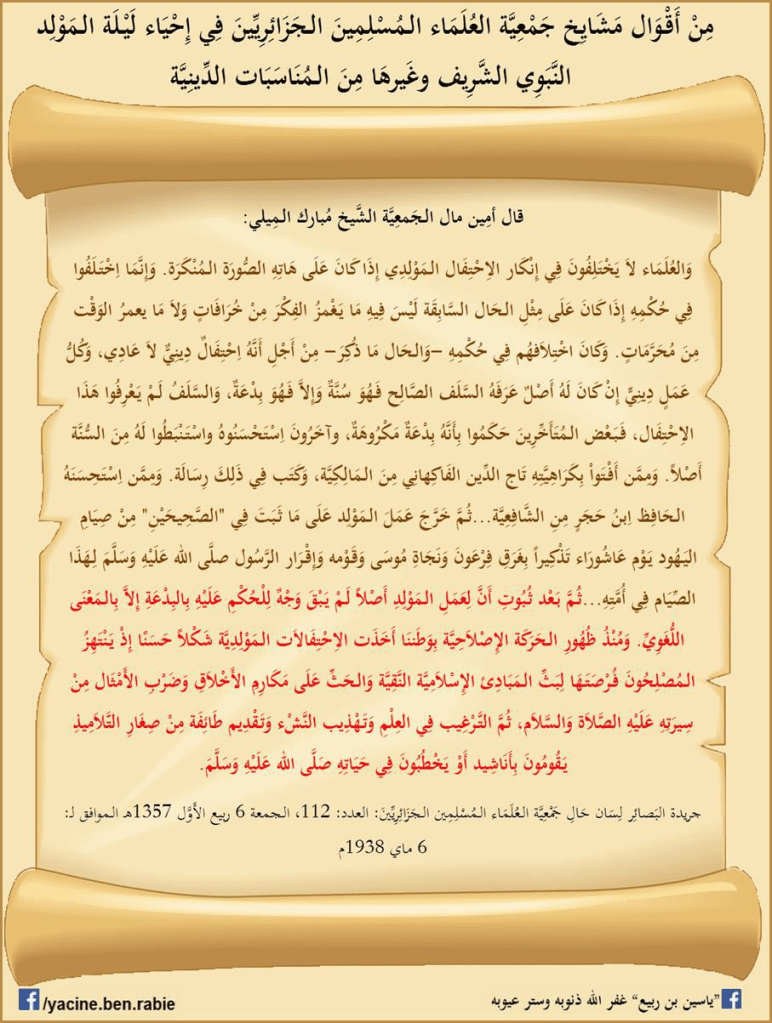 مِنْ أَقْوَال مَشَايِخ جَمْعِيَّة العُلَمَاء المُسْلِمِينَ الجَزَائِرِيِّينَ فِي إِحْيَاء لَيْلَة المَوْلِد
النَّبَوِي الشَّرِيف وغَيرهَا مِنَ المُنَاسَبَات الدِّينِيَّة
قال أمِين مال الجَمعِيَّة الشَّيخ مُبارك المِيلي:
وَالعُلَمَاء لاَ يَخْتَلِفُونَ فِي إِنْكَار الاِحْتِفَال المَوْلِدِي إِذَا كَانَ عَلَى هَاتِهِ الصُّورَة المُنْكَرَة. وَإِنَّمَا اِخْتَلَفُوا
فِي حُكْمِهِ إِذَا كَانَ عَلَى مِثْلِ الحَال السَّابِقَة لَيْسَ فِيهِ مَا يَغْمزُ الفِكْرَ مِنْ خُرَافَاتٍ وَلاَ مَا يعمرُ الوَقْت
مِنَ مُحَرَّمَاتٍ. وَكَانَ اخْتِلاَفهُم فِي حُكْمِهِ –وَالحَال مَا ذُكِرَ– مِنْ أَجْلِ أَنَّهُ اِحْتِفَالٌ دِينِيٌّ لاَ عَادِي، وَكُلُّ
عَمَلٍ دِينِيٍّ إِنْ كَانَ لَهُ أَصْلٌ عَرَفَهُ السَّلَف الصَّالِح فَهُوَ سُنَّةٌ وَإِلاَّ فَهُوَ بِدْعَةٌ، وَالسَّلَفُ لَمْ يَعْرِفُوا هَذَا
الاِحْتِفَال، فَبَعْض المُتَأَخِّرِينَ حَكَمُوا بِأَنَّهُ بِدْعَةٌ مَكْرُوهَةٌ، وآخَرُونَ اِسْتَحْسَنُوهُ واسْتَنْبَطُوا لَهُ مِنَ السُّنَّة
أَصْلاً. وَمِمَّن أَفْتَواْ بِكَرَاهِيَّتِهِ تَاج الدِّين الفَاكِهاني مِنَ المَالِكِيَّة، وَكَتَب فِي ذَلِكَ رِسَالَة. وَمِمَّن اِسْتَحِسَنَهُ
الحَافِظ اِبنُ حَجَرٍ مِنِ الشَّافِعِيَّة...ثُمَّ خَرَّجَ عَمَلَ المَوْلِد عَلَى مَا ثَبَتَ فِي "الصَّحِيحَيْنِ" مِنْ صِيَامِ
اليَهُود يَوْم عَاشُورَاء تَذْكِيراً بِغَرَقِ فِرْعَونَ وَنَجَاةِ مُوسَى وَقَوْمه وَإِقْرَار الرَّسُول صلَّى الله عَلَيْهِ وَسَلَّمَ لِهَذَا
الصِّيَام فِي أُمَّتِهِ...ثُمَّ بَعْد ثُبُوتِ أَنَّ لِعَمَلِ المَوْلِدِ أَصْلاً لَمْ يَبْقَ وَجْهٌ لِلْحُكْمِ عَلَيْهِ بِالبِدْعَةِ إِلاَّ بِالمَعْنَى
اللُّغَوِيِّ. وَمُنْذُ ظُهُورِ الحَرَكَة الإِصْلاَحِيَّة بِوَطَنِنَا أَخَذَت الاِحْتِفَالاَت المَوْلِدِيَّة شَكْلاً حَسَنًا إِذْ يَنْتَهِزُ
المُصْلِحُونَ فُرْصَتَهَا لِبَثِّ المَبَادِئ الإِسْلاَمِيَّة النَّقِيَّة وَالحَثِّ عَلَى مَكَارِمِ الأَخْلاَقِ وَضَرْبِ الأَمْثَال مِنْ
سِيرَتِهِ عَلَيْهِ الصَّلاَة وَالسَّلاَم، ثُمَّ التَّرْغِيب فِي العِلْمِ وَتَهْذِيب النَّشْء وَتَقْدِيم طَائِفَة مِنْ صِغَارِ التَّلاَمِيذِ
يَقُومُونَ بِأَنَاشِيد أَوْ يَخْطُبُونَ فِي حَيَاتِهِ صَلَّى الله عَلَيْهِ وَسَلَّمَ.
جريدة البَصائر لِسَان حَالِ جَمْعِيَّة العُلَمَاء المُسْلِمِين الجَزَائِريِّينَ: العدد: 112، الجمعة 6 ربيع الأوَّل 1357هـ الموافق لـ:
6 ماي 1938م
/yacine.ben.rabie
"ياسين بن ربيع" غفر الله ذنوبه وستر عيوبه